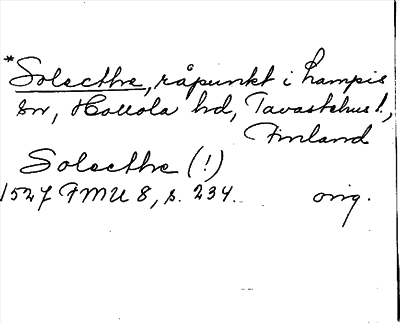 *Solecthe, råpunkt i Lampis
sn, Hollola hd, Tavastehus l.,
Finland
Solecthe (!)
1527 FMU 8, s. 234. orig.